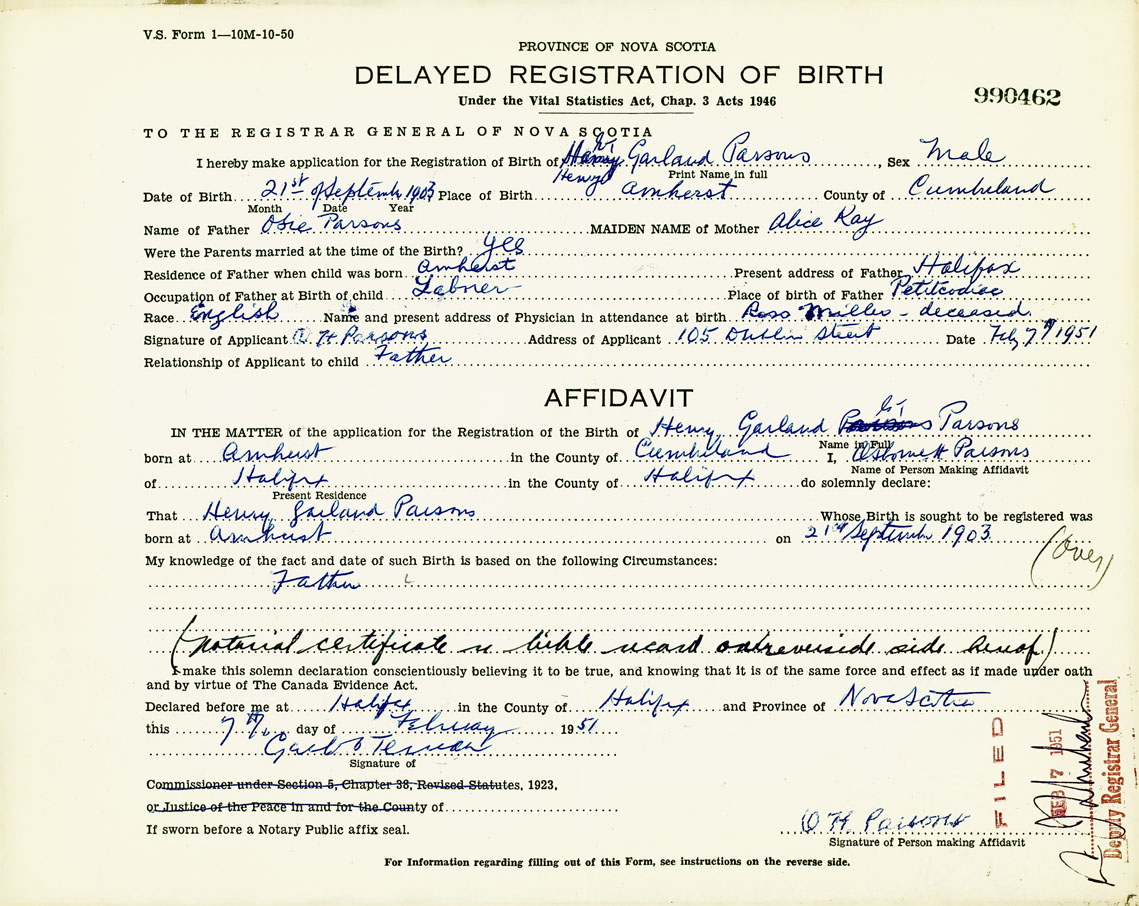 V.S. Form 1—10M-10-50
PROVINCE OF NOVA SCOTIA
DELAYED REGISTRATION OF BIRTH
990462
Under the Vital Statistics Act, Chap. 3 Acts 1946
TO THE REGISTRAR GENERAL OF NOVA SCOTIA
I hereby make application for the Registration of Birth of Garland Parsons, Sex Male
Henry Print Name in full
Date of Birth 21st of September 1903 Place of Birth Amherst County of Cumberland
Month Date Year
Name of Father Osie Parsons MAIDEN NAME of Mother Alice Kay
Were the Parents married at the time of the Birth? Yes
Residence of Father when child was born Amherst Present address of Father Halifax
Occupation of Father at Birth of child Laborer Place of birth of Father Petitcodiac
Race English Name and present address of Physician in attendance at birth Ross Miller - deceased
Signature of Applicant O H Parsons Address of Applicant 105 Dublin Street Date Feb 7th 1951
Relationship of Applicant to child Father
AFFIDAVIT
IN THE MATTER of the application for the Registration of the Birth of Henry Garland Parsons Parsons
Name in Full
born at Amherst in the County of Cumberland I, Osborne H Parsons
Name of Person Making Affidavit
of Halifax in the County of Halifax do solemnly declare:
Present Residence
That Henry Garland Parsons Whose Birth is sought to be registered was
born at Amherst on 21st September 1903
(Over)
My knowledge of the fact and date of such Birth is based on the following Circumstances:
Father
(Notarial certificate bible record on reverse side hereof)
I make this solemn declaration conscientiously believing it to be true, and knowing that it is of the same force and effect as if made under oath
and by virtue of The Canada Evidence Act.
Declared before me at Halifax in the County of Halifax and Province of Nova Scotia
this 7th day of February 1951
Signature of
Commissioner under Section 5, Chapter 38, Revised Statutes, 1923,
or Justice of the Peace in and for the County of
If sworn before a Notary Public affix seal.
O H Parsons
Signature of Person making Affidavit
For Information regarding filling out of this Form, see instructions on the reverse side.
FILED
FEB 7 1951
Deputy Registrar General